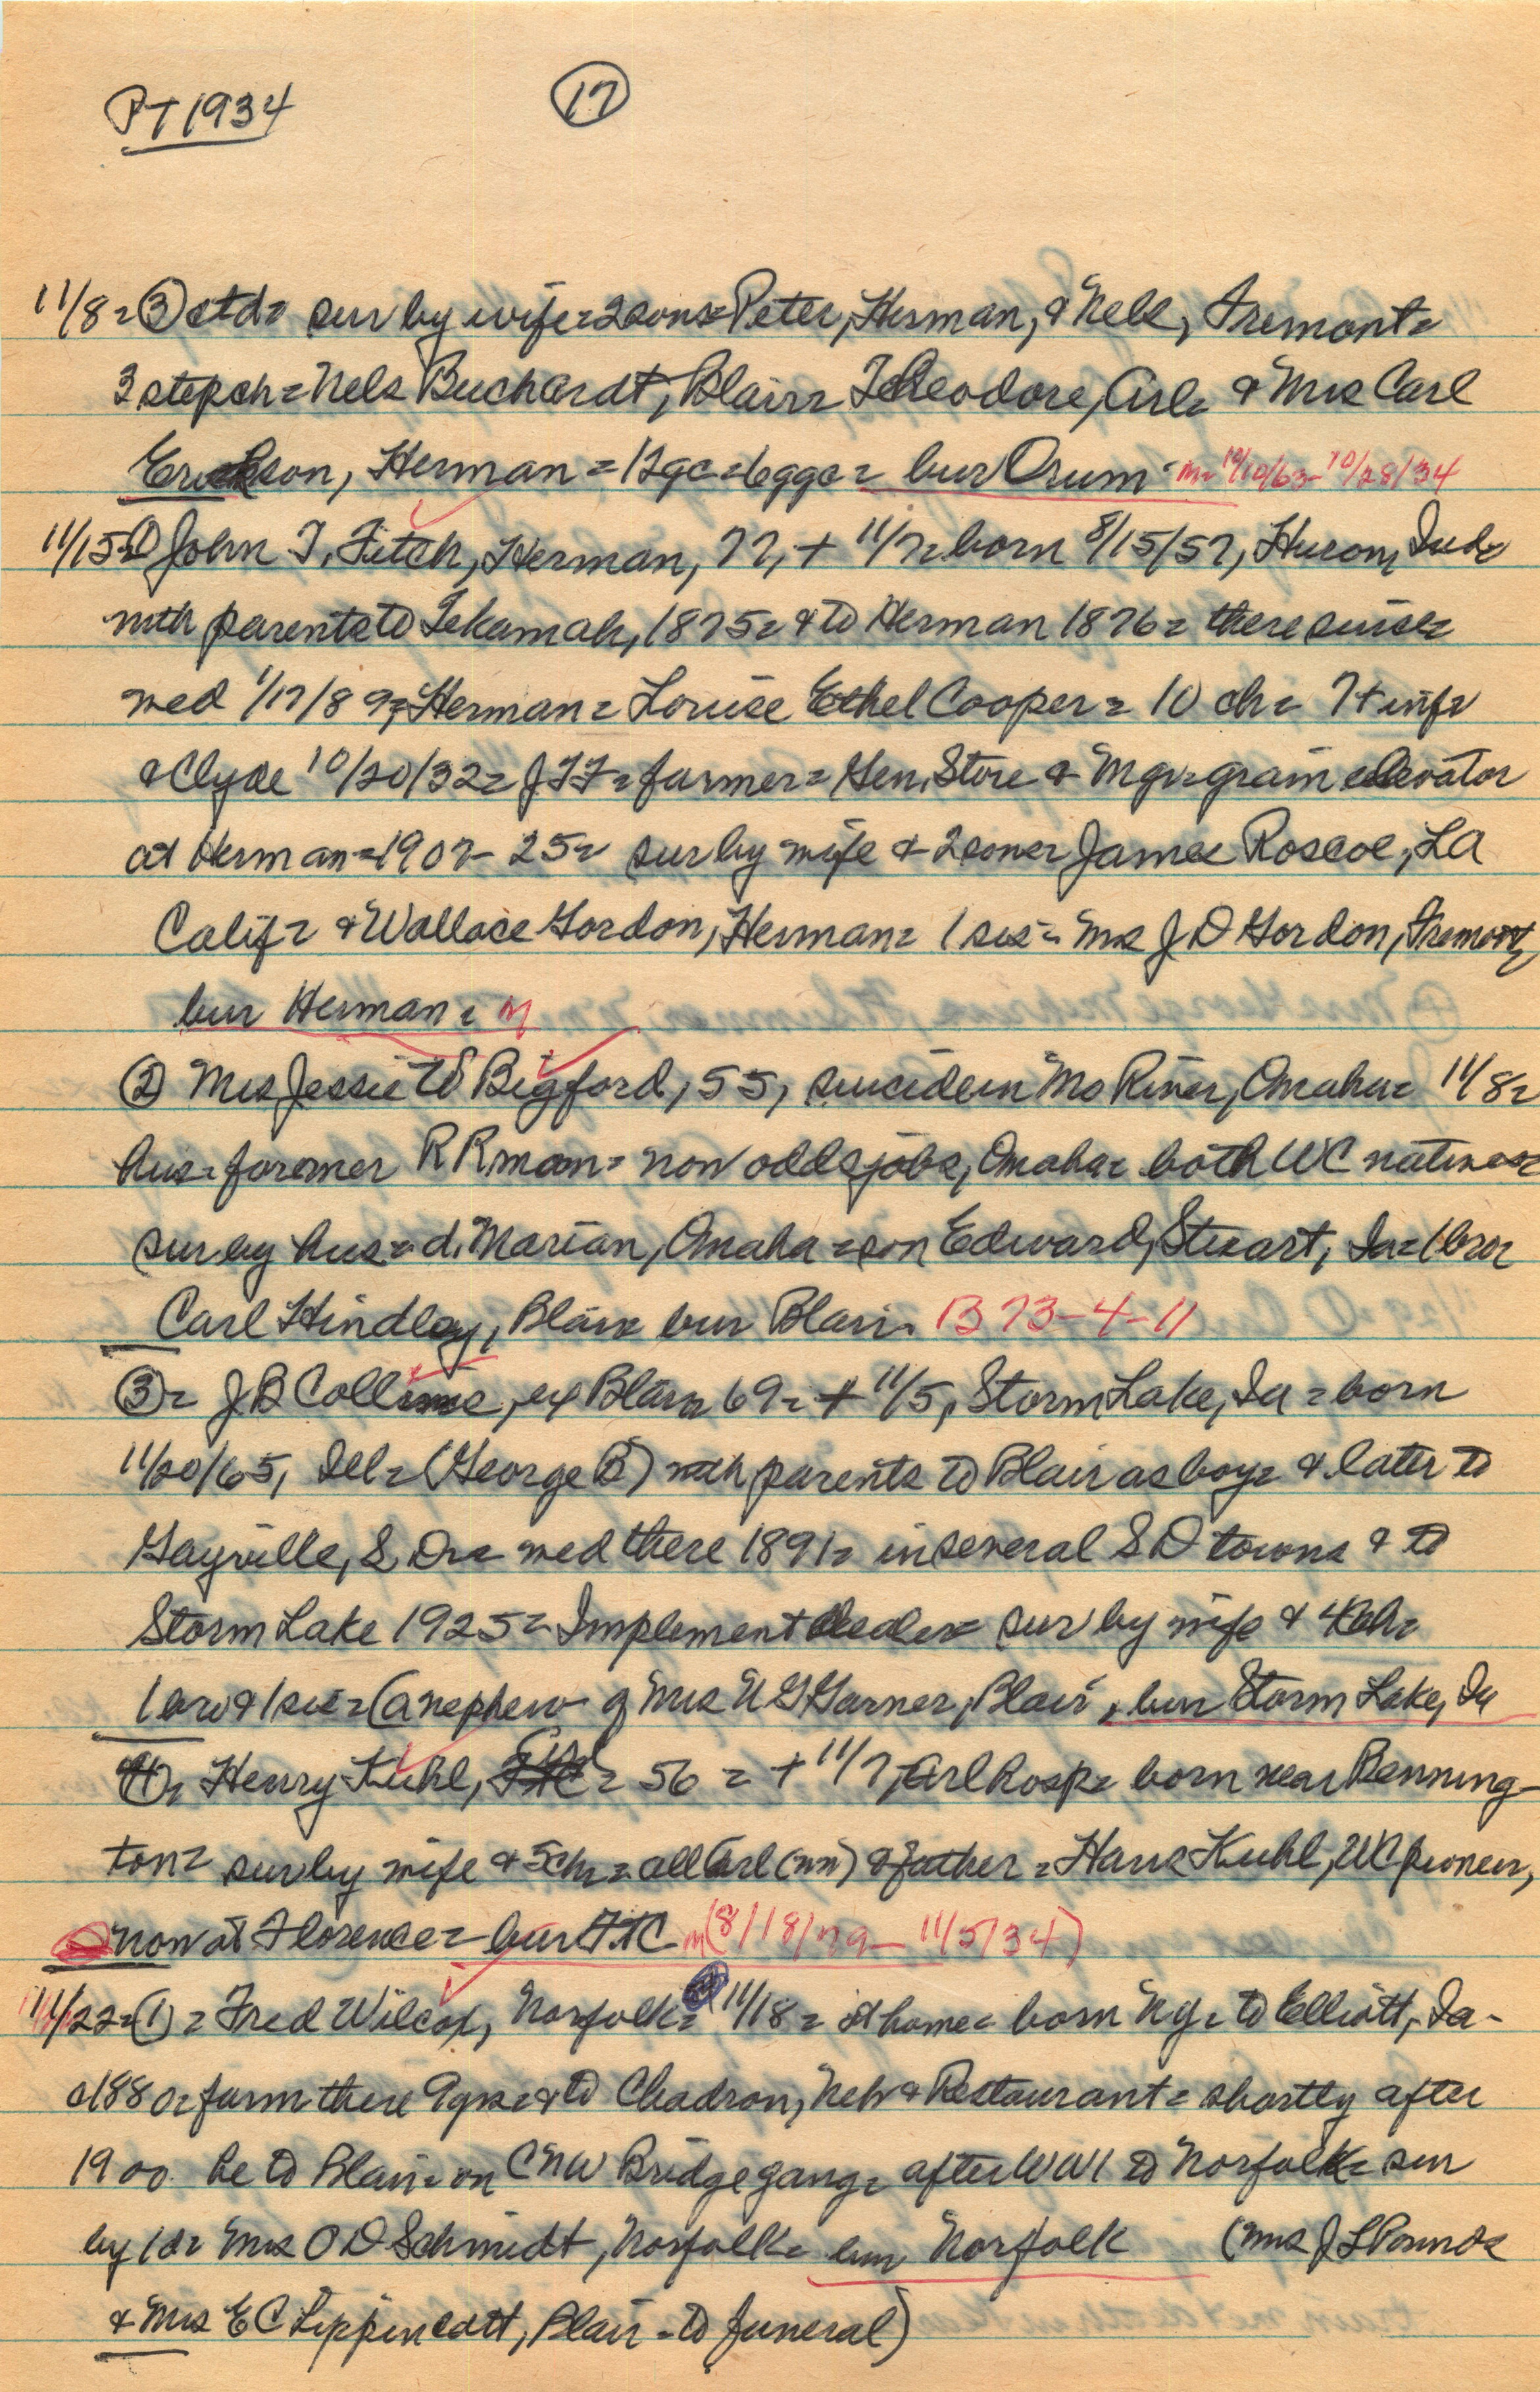 PT 1934
17
11/8 = 3 ctd = sur by wife = 2 sons = Peter, Herman, & Nels, Fremont =
3 step ch = Nels Buchardt, Blair = Theodore, Arl = & Mrs Carl
Erickson, Herman = 12 gc = 6 ggc = bur Orum = m = 10/10/63 - 10/28/34
11/15 = 1 John T. Fitch, Herman, 77, + 11/7 = born 8/15/57, Huron, Ind =
with parents to Tekamah, 1875 = & to Herman 1876 = there since =
wed 1/17/89, Herman = Louise Ethel Cooper = 10 ch = 7 + inf =
& Clyde 10/20/32 = JTF = farmer = Gen. Store & Mgr = grain elevator
at Herman = 1907 - 25 = sur by wife & 2 sons = James Roscoe, LA
Calif = & Wallace Gordon, Herman = 1 sis = Mrs J D Gordon, Fremont,
bur Herman = M
2 Mrs Jessie Bigford, 55, suicide in Mo River, Omaha = 11/8 =
hus = former RR man = now odds jobs, Omaha = both WC natives =
sur by hus = d. Marian, Omaha = son Edward, Stuart, Ia = 1 bro =
Carl Hindley, Blair = bur Blair = B 73-4-11
3 = J B Collins, ex Blair = 69 = + 11/5, Storm Lake, Ia = born
11/20/65, Ill = (George B) with parents to Blair as boy = & later to
Gayville, S. D = wed there 1891 = in several S D towns & to
Storm Lake 1925 = Implement dealer = sur by wife & 4 ch =
1 bro & 1 sis = (a nephew of Mrs U G Garner, Blair, bur Storm Lake, Ia
4 = Henry Kuhl, = 56 = + 11/7, Arl Hosp = born near Benning-
ton = sur by wife & 5 ch = all Arl (nn) & father = Hans Kuhl, WC pioneer,
now at Florence = bur FtC m (8/18/79 - 11/5/34)
11/22 = (1) = Fred Wilcox, Norfolk = 11/18 = at home = born NY = to Elliott, Ia -
c1880 = farm there 9 yrs = & to Chadron, Neb & Restaurant = shortly after
1900 he to Blair = on CNW Bridge gang = after WW1 to Norfolk = sur
by 1 d = Mrs O D Schmidt, Norfolk = bur Norfolk (Mrs J L Pounds
& Mrs E C Lippincott, Blair - to funeral)